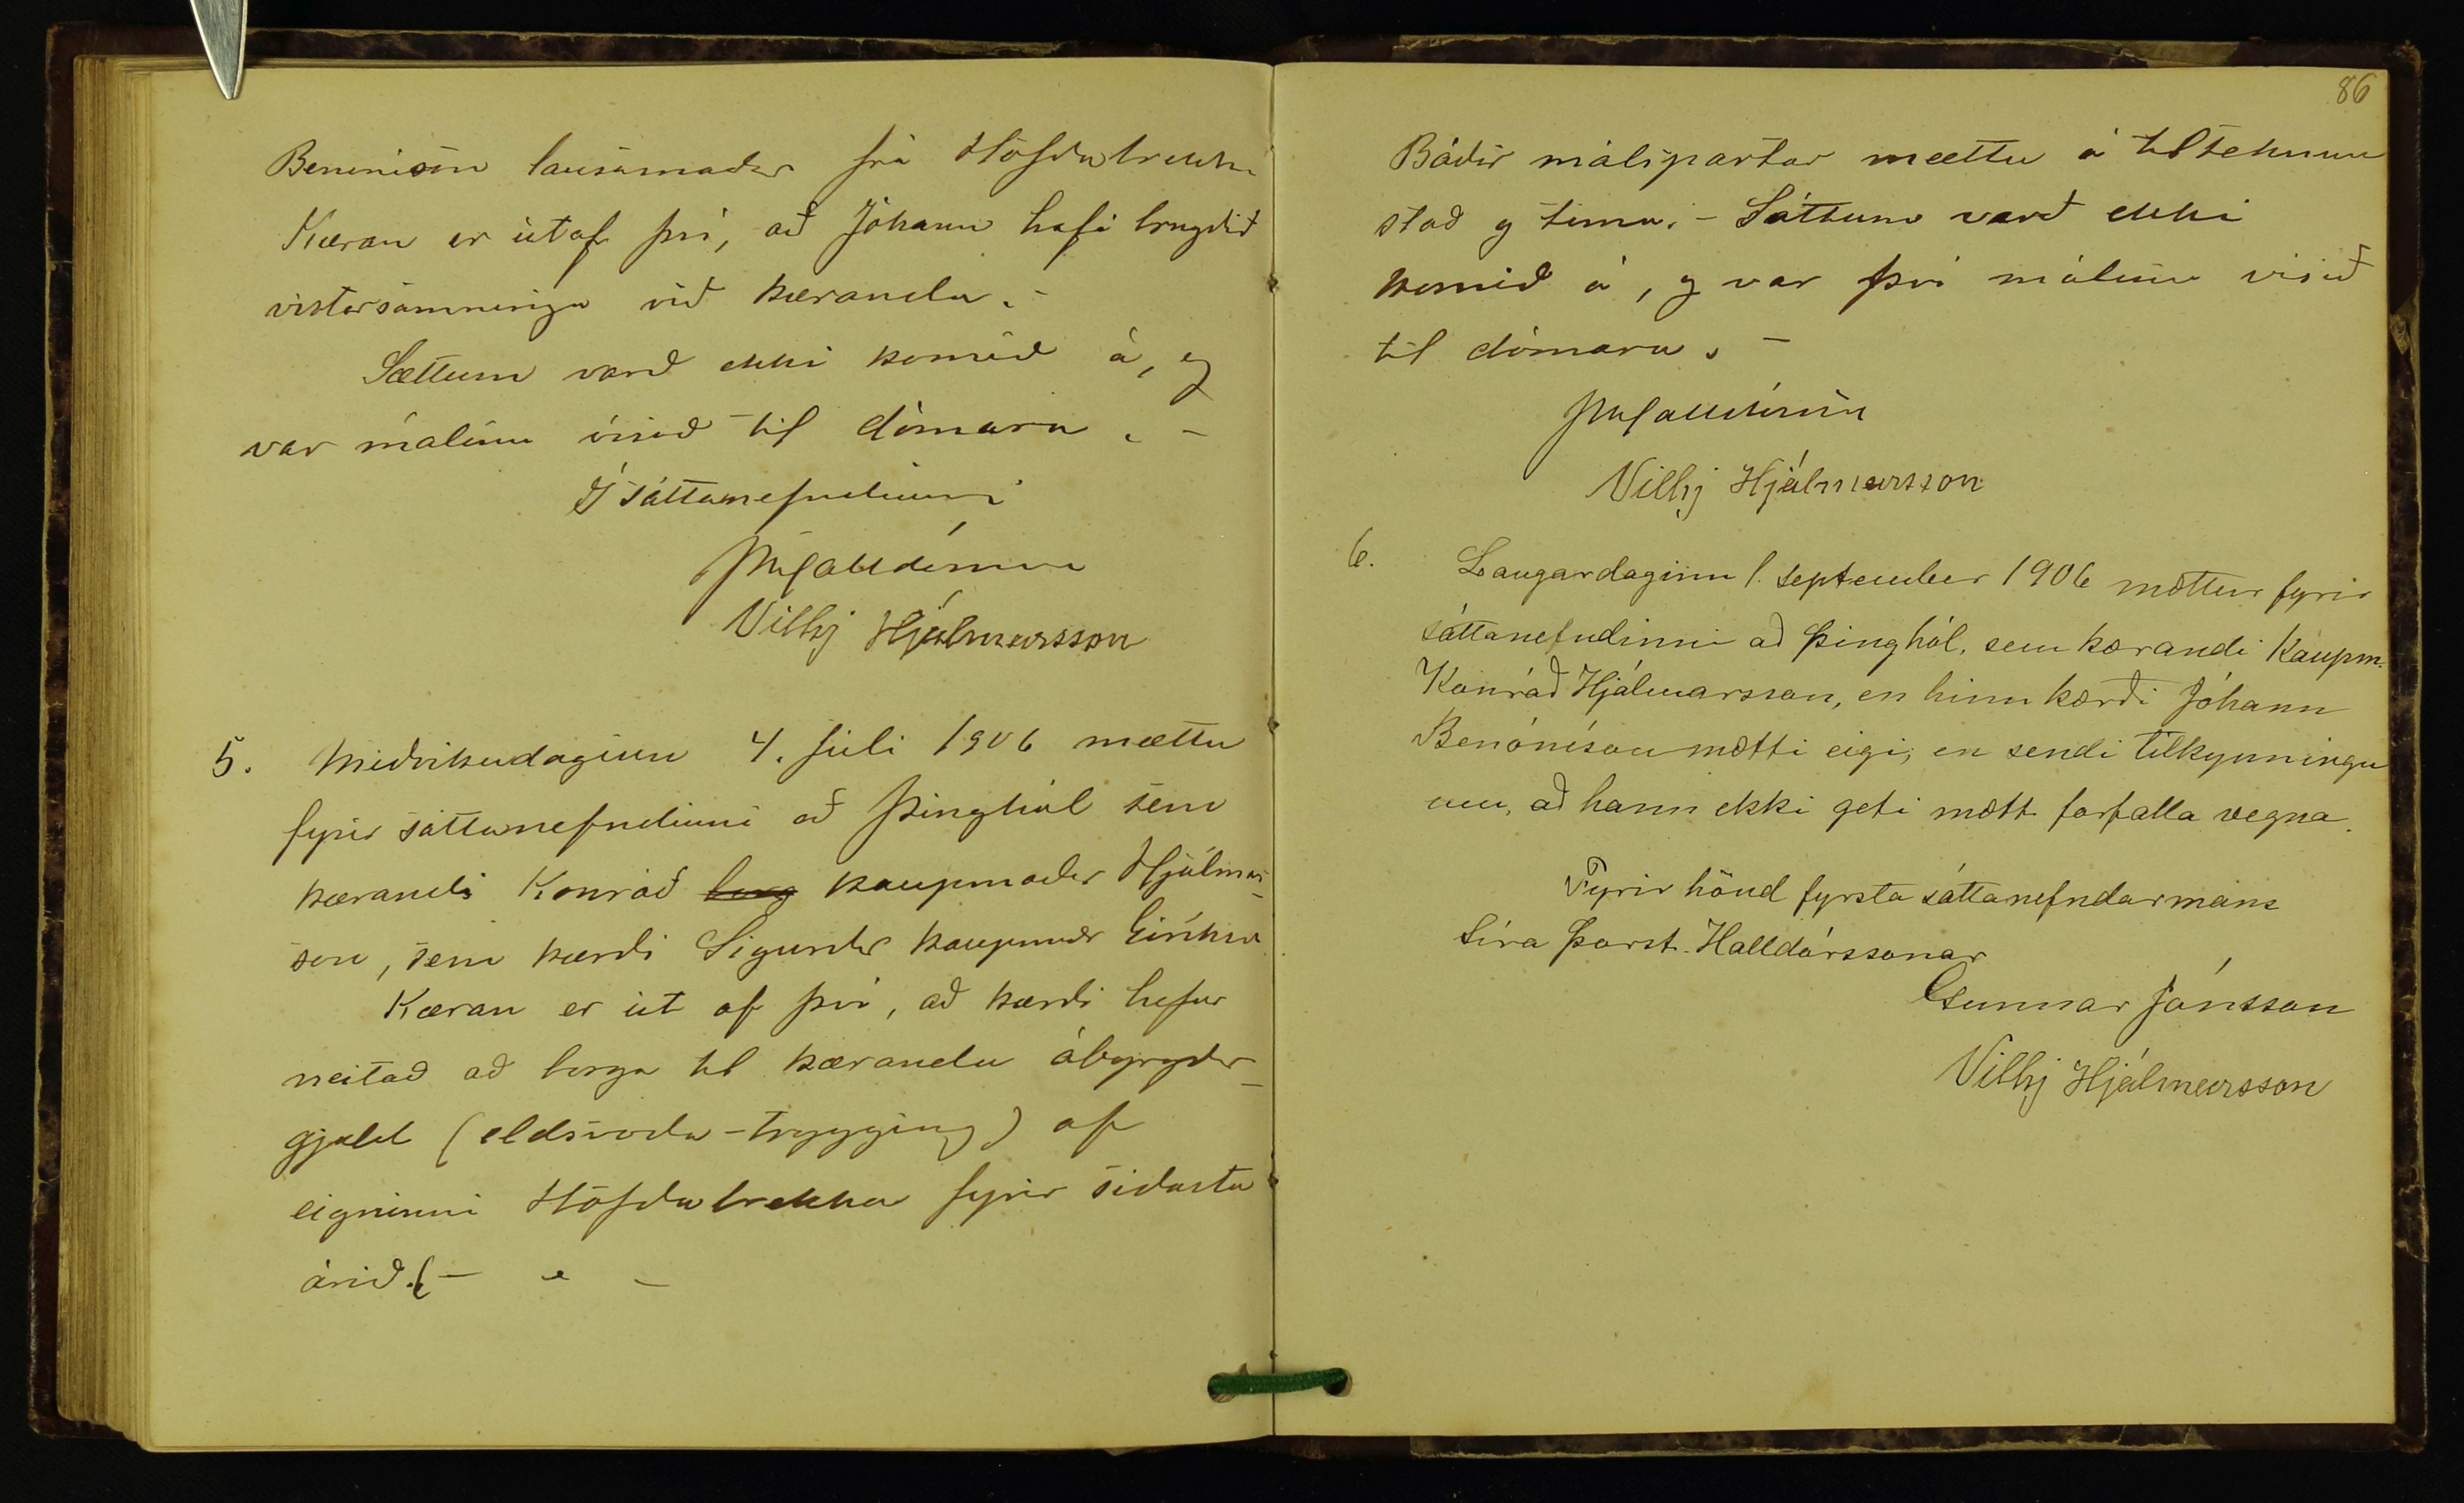 Benónisson lausamaður frá Höfðabrekku
Kæran er útaf því, að Jóhann hafi brugðið
vistarsamninga við kæranda. -
Sættum varð ekki komið á, og
var málinu vísað til dómara. -
Í sáttanefndinni
ÞHalldórsson
Vilhj Hjálmarsson
5. Miðvikudaginn 4. Júli 1906 mættu
fyrir sáttanefndinni að Þinghól sem
kærandi Konráð borg kaupmaður Hjálmars-
son, sem kærði Sigurður kaupmaðr Eiríksson
Kæran er út af því, að kærði hefur
neitað að borga til kæranda ábyrgðar-
gjald (eldsvoða-trygging) af
eigninni Höfðabrekka fyrir síðasta
árið. -
86
Báðir málspartar mættu á tilteknum
stað og tíma. - Sáttum varð ekki
komið á, og var því málinu vísað
til dómara. -
ÞHalldórsson
Vilhj Hjálmarsson
6. Laugardaginn 1. september 1906 mættur fyrir
sáttanefndinni að Þinghól, sem kærandi Kaupm.
Konráð Hjálmarsson, en hinn kærði Jóhann
Benónísson mætti eigi, en sendi tilkynningu
um, að hann ekki geti mætt forfalla vegna.
Fyrir hönd fyrsta sáttanefndarmans
Síra Þorst. Halldórssonar
Gunnar Jónsson
Vilhj Hjálmarsson